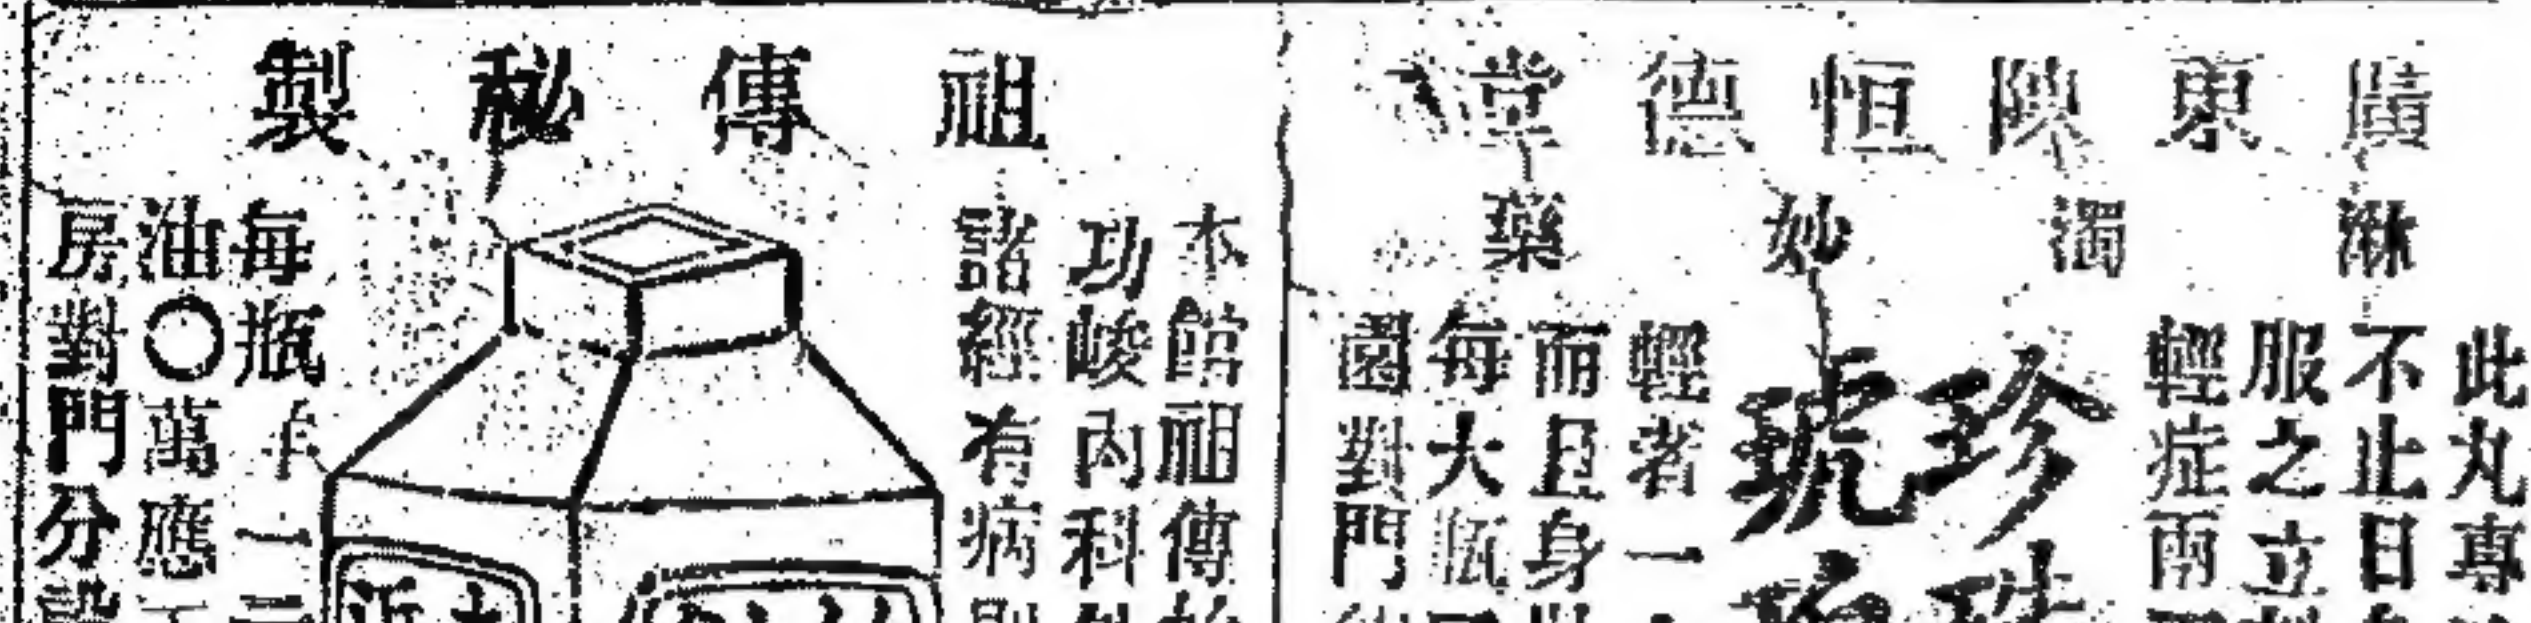 廣東陳恒德堂
淋濁妙藥
此丸專
不止日
服之立
輕症兩
珍珠
琥
輕者一
而且身
每大瓶
園對門
祖傳秘製
本館祖傳
功峻內科
諸經有病
每瓶洋一元
油〇萬應
房對門分設